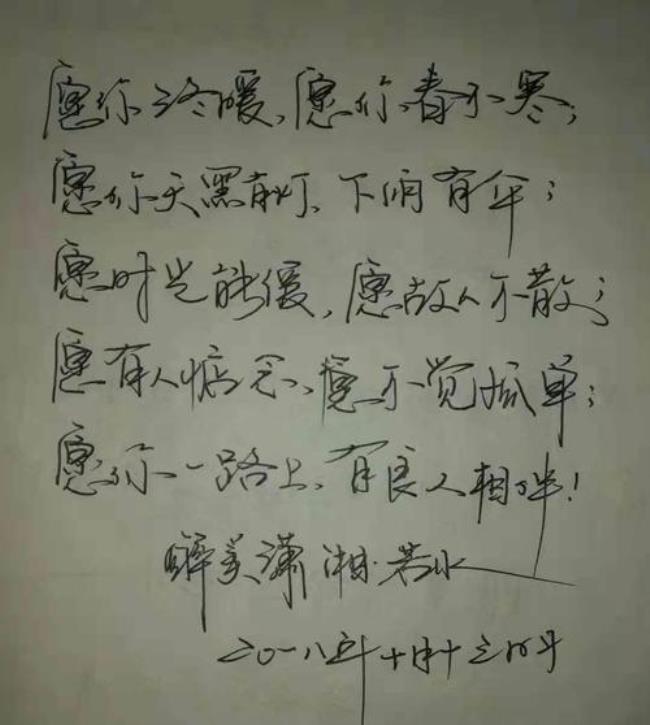 愿你冬暖,愿你春不寒;
愿你天黑有灯、下雨有伞;
愿时光能缓,愿故人不散;
愿有人惦念、愿不觉孤单;
愿你一路上、有良人相伴!
醉美潇湘·若水
二〇一八年十月十三日